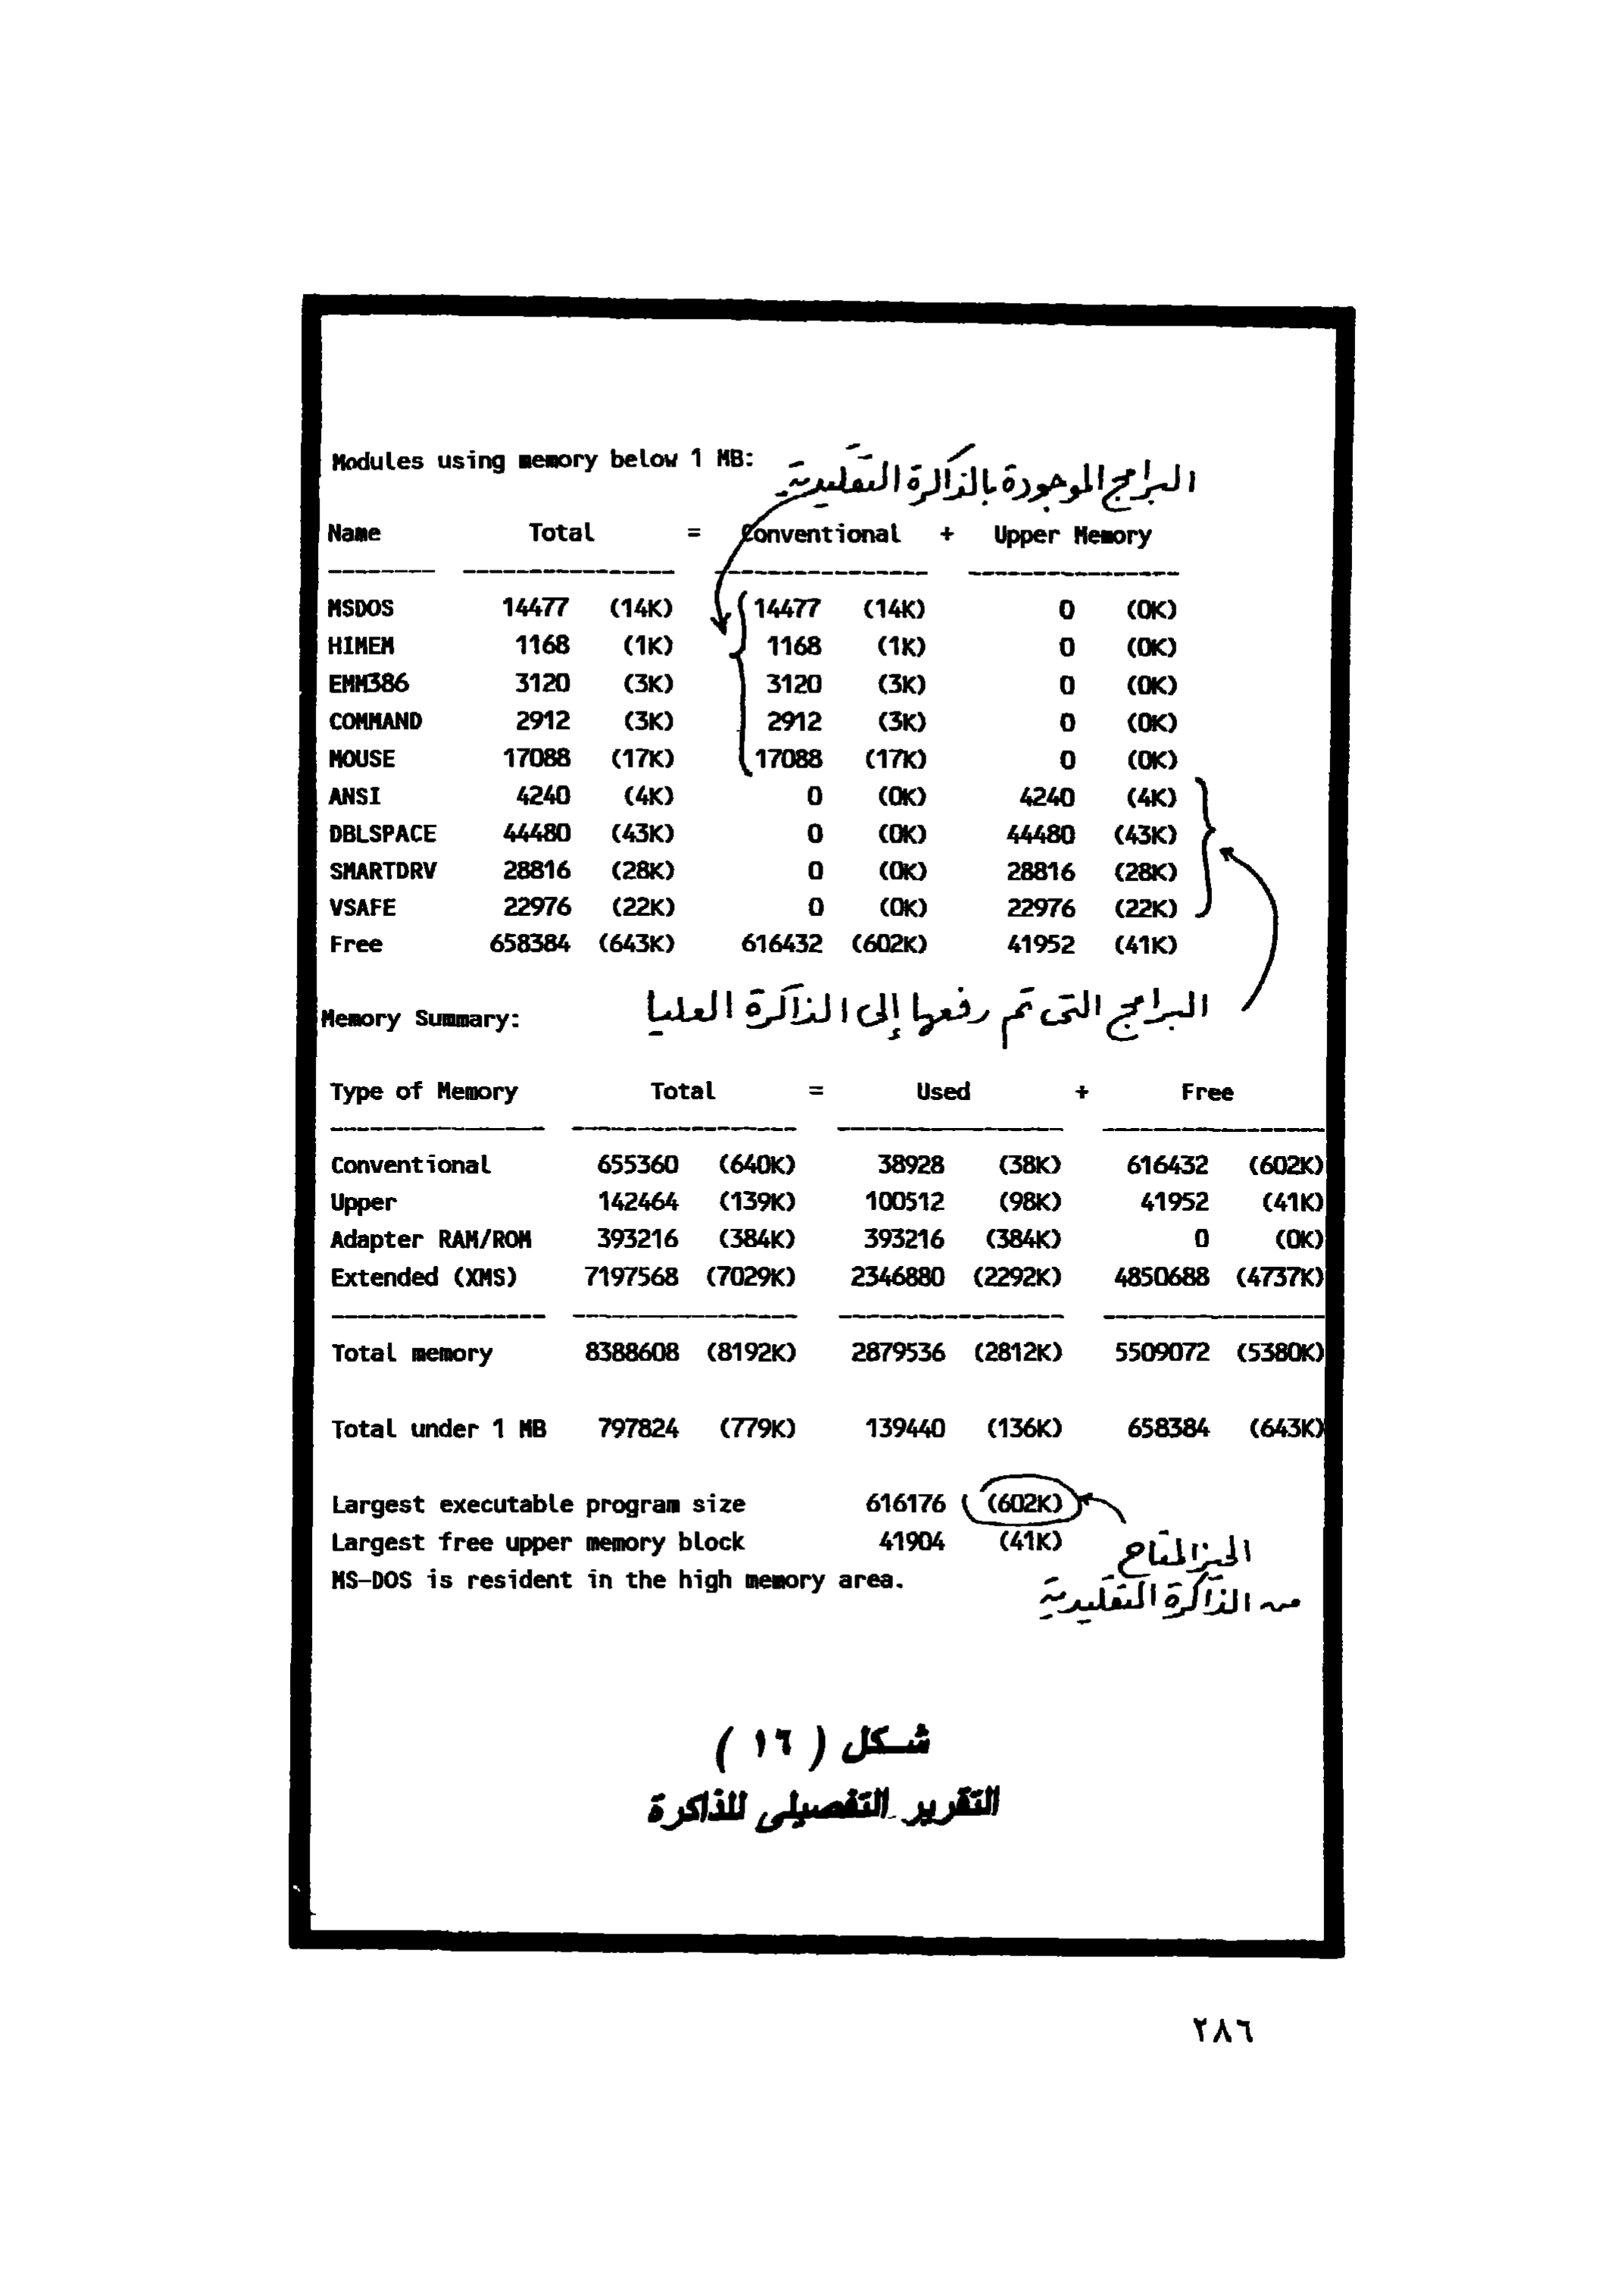 Modules using memory below 1 MB:
البرامج الموجودة بالذاكرة التقليدية
Name Total = Conventional + Upper Memory
-------- ---------------- ---------------- ----------------
MSDOS 14477 (14K) 14477 (14K) 0 (0K)
HIMEM 1168 (1K) 1168 (1K) 0 (0K)
EMM386 3120 (3K) 3120 (3K) 0 (0K)
COMMAND 2912 (3K) 2912 (3K) 0 (0K)
MOUSE 17088 (17K) 17088 (17K) 0 (0K)
ANSI 4240 (4K) 0 (0K) 4240 (4K)
DBLSPACE 44480 (43K) 0 (0K) 44480 (43K)
SMARTDRV 28816 (28K) 0 (0K) 28816 (28K)
VSAFE 22976 (22K) 0 (0K) 22976 (22K)
Free 658384 (643K) 616432 (602K) 41952 (41K)
البرامج التى تم رفعها إلى الذاكرة العليا
Memory Summary:
Type of Memory Total = Used + Free
---------------- ----------------- ----------------- -----------------
Conventional 655360 (640K) 38928 (38K) 616432 (602K)
Upper 142464 (139K) 100512 (98K) 41952 (41K)
Adapter RAM/ROM 393216 (384K) 393216 (384K) 0 (0K)
Extended (XMS) 7197568 (7029K) 2346880 (2292K) 4850688 (4737K)
---------------- ----------------- ----------------- -----------------
Total memory 8388608 (8192K) 2879536 (2812K) 5509072 (5380K)
Total under 1 MB 797824 (779K) 139440 (136K) 658384 (643K)
Largest executable program size 616176 (602K)
Largest free upper memory block 41904 (41K)
MS-DOS is resident in the high memory area.
الحيز المتاح
من الذاكرة التقليدية
شكل ( ١٦ )
التقرير التفصيلى للذاكرة
٢٨٦